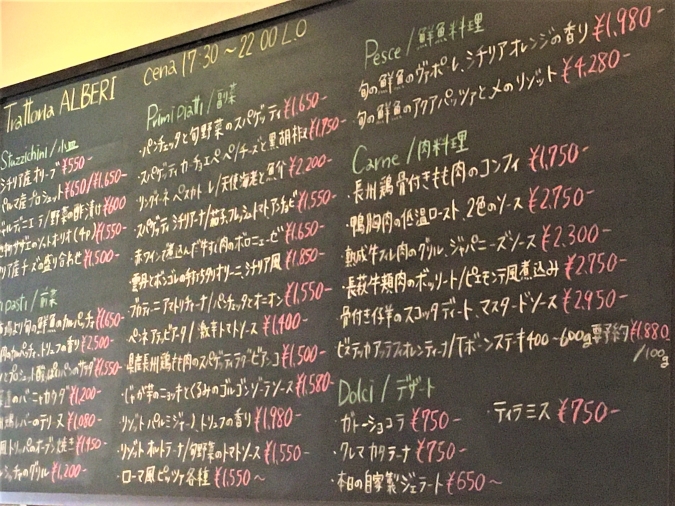 Trattoria ALBERI cena 17:30~22:00 L.O
Stuzzichini/小皿
シチリア産オリーブ ¥550-
パルマ産プロシュット ¥650/¥1,650-
/野菜の酢漬け ¥600
サザエのソトオリオ(4P) ¥550-
チーズの盛り合わせ ¥1,500-
pasti/前菜
旬鮮魚のカルパッチョ ¥1,650-
トリュフの香り ¥2,500-
¥1,550-
バーニャカウダ ¥1,200-
レバーのテリーヌ ¥1,080-
トリッパのオーブン焼き ¥1,450-
のグリル ¥1,200-
Primi piatti/副菜
・パンチェッタと旬野菜のスパゲッティ ¥1,650-
・スパゲティ カーチョエペペ/チーズと黒胡椒 ¥1,750-
・リングイネ ペスカトーレ/天使海老と魚介 ¥2,200-
・スパゲッティ シチリアーナ/茄子、フレッシュトマト、アンチョビ ¥1,550-
・赤ワインで煮込んだ牛すじ肉のボロニェーゼ ¥1,650-
・雲丹とボンゴレの手打ちタリオリーニ、シチリア風 ¥1,850-
・ブカティーニ アマトリチャーナ/パンチェッタとオニオン ¥1,550-
・ペンネ アラビアータ/激辛トマトソース ¥1,400-
・県産長州鶏もも肉のスパゲッティ ラグビアンコ ¥1,500-
・じゃが芋のニョッキとくるみのゴルゴンゾーラソース ¥1,580-
・リゾット パルミジャーノ、トリュフの香り ¥1,980-
・リゾット オルトラーナ/旬野菜のトマトソース ¥1,550-
・ローマ風ピッツァ各種 ¥1,550~
Pesce/鮮魚料理
・旬の鮮魚のヴァポーレ、シチリアオレンジの香り ¥1,980-
・旬の鮮魚のアクアパッツァと〆のリゾット ¥4,280-
Carne/肉料理
・長州鶏骨付きもも肉のコンフィ ¥1,750-
・鴨胸肉の低温ロースト、2色のソース ¥2,750-
・熟成牛フィレ肉のグリル、ジャパニーズソース ¥2,300-
・長萩牛頬肉のボッリート/ピエモンテ風煮込み ¥2,750-
・骨付き仔羊のスコッタディート、マスタードソース ¥2,950-
・ビステッカ アッラ フィオレンティーナ/Tボーンステーキ400~600g 要予約 ¥1,880/100g
Dolci/デザート
・ガトーショコラ ¥750- ・ティラミス ¥750-
・クレマカタラーナ ¥750-
・本日の自家製ジェラート ¥650~